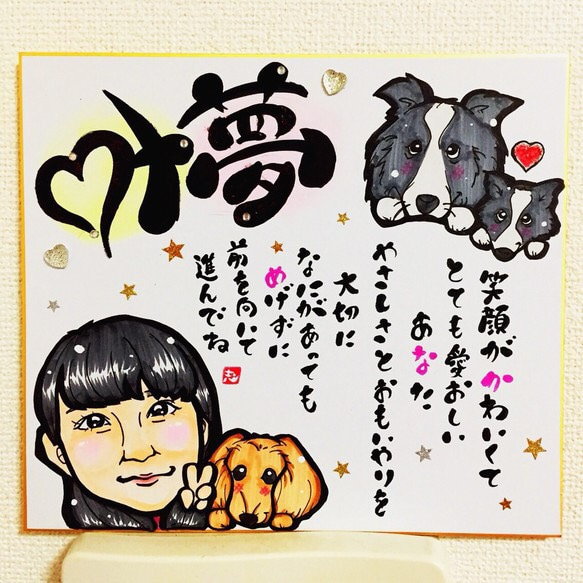 叶夢
笑顔がかわいくて
とても愛おしい
あなた
やさしさとおもいやりを
大切に
なにがあっても
めげずに
前を向いて
進んでね